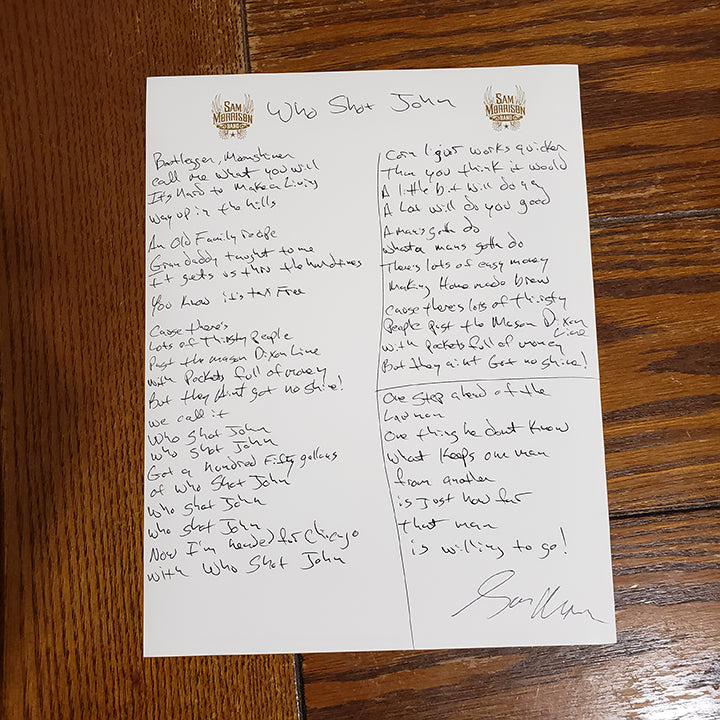 SAM
MORRISON
BAND
Who Shot John
SAM
MORRISON
BAND
Bootlegger, Moonshiner
call me what you will
It's Hard to Make a Living
way up in the hills
An Old Family recipe
Grandaddy taught to me
It gets us thru the hard times
You know it's tax Free
Cause there's
Lots of Thirsty People
Past the mason Dixon Line
with Pockets full of money
But they Aint got no shine!
we call it
Who Shot John
who shot John
Got a hundred Fifty gallons
of Who Shot John
Who shot John
who shot John
Now I'm headed for Chicago
with Who Shot John
Corn liquor works quicker
Than you think it would
A little bit will do ya
A Lot will do you good
A mans gotta do
what a mans gotta do
There's lots of easy money
Making Home made brew
Cause there's lots of thirsty
People Past the Mason Dixon
Line
with Pockets full of money
But they aint Got no shine!
One step ahead of the
Lawman
One thing he dont know
what keeps one man
from another
is Just how far
that man
is willing to go!